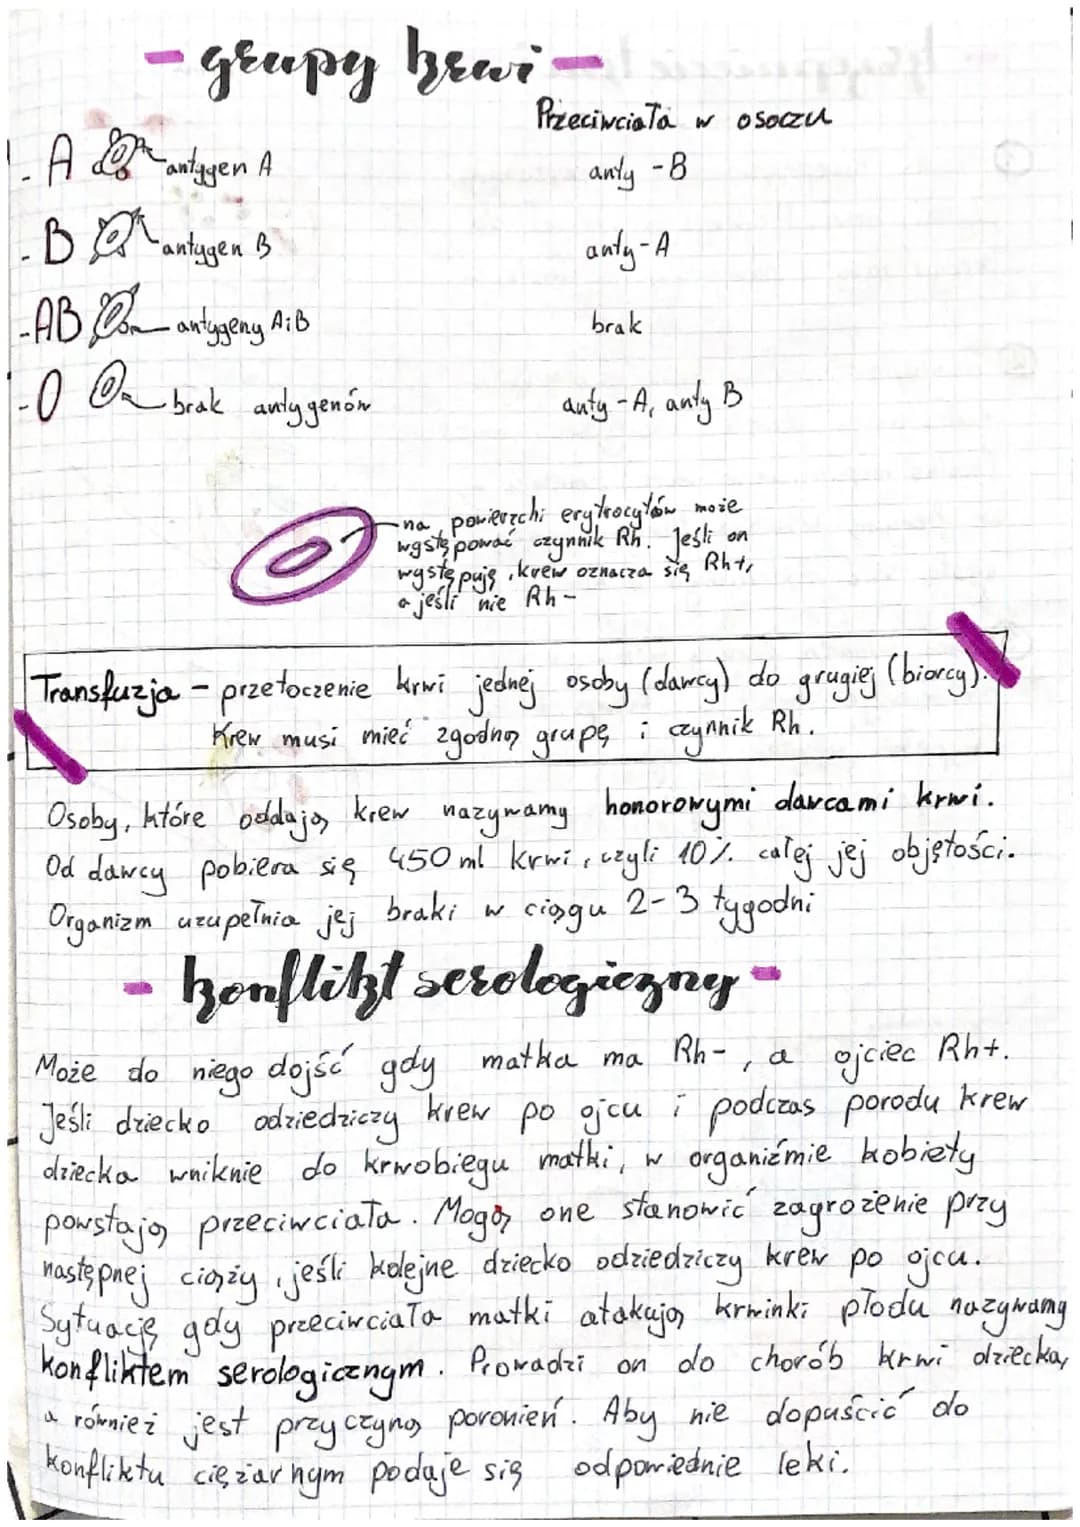 - grupy krwi -
Przeciwciała w osoczu
- A antygen A anty - B
- B antygen B anty - A
- AB antygeny A i B brak
- 0 brak antygenów anty - A, anty B
na powierzchi erytrocytów może
występować czynnik Rh. Jeśli on
występuję, krew oznacza się Rh+,
a jeśli nie Rh -
Transfuzja - przetoczenie krwi jednej osoby (dawcy) do grugiej (biorcy).
Krew musi mieć zgodną grupę i czynnik Rh.
Osoby, które oddają krew nazywamy honorowymi dawcami krwi.
Od dawcy pobiera się 450 ml krwi, czyli 10% całej jej objętości.
Organizm uzupełnia jej braki w ciągu 2-3 tygodni
- konflikt serologiczny -
Może do niego dojść gdy matka ma Rh-, a ojciec Rh+.
Jeśli dziecko odziedziczy krew po ojcu i podczas porodu krew
dziecka wniknie do krwobiegu matki, w organiźmie kobiety
powstają przeciwciała. Mogą one stanowić zagrożenie przy
następnej ciąży, jeśli kolejne dziecko odziedziczy krew po ojcu.
Sytuację gdy przeciwciała matki atakują krwinki płodu nazywamy
konfliktem serologicznym. Prowadzi on do chorób krwi dziecka,
a również jest przyczyną poronień. Aby nie dopuścić do
konfliktu ciężarnym podaje się odpowiednie leki.